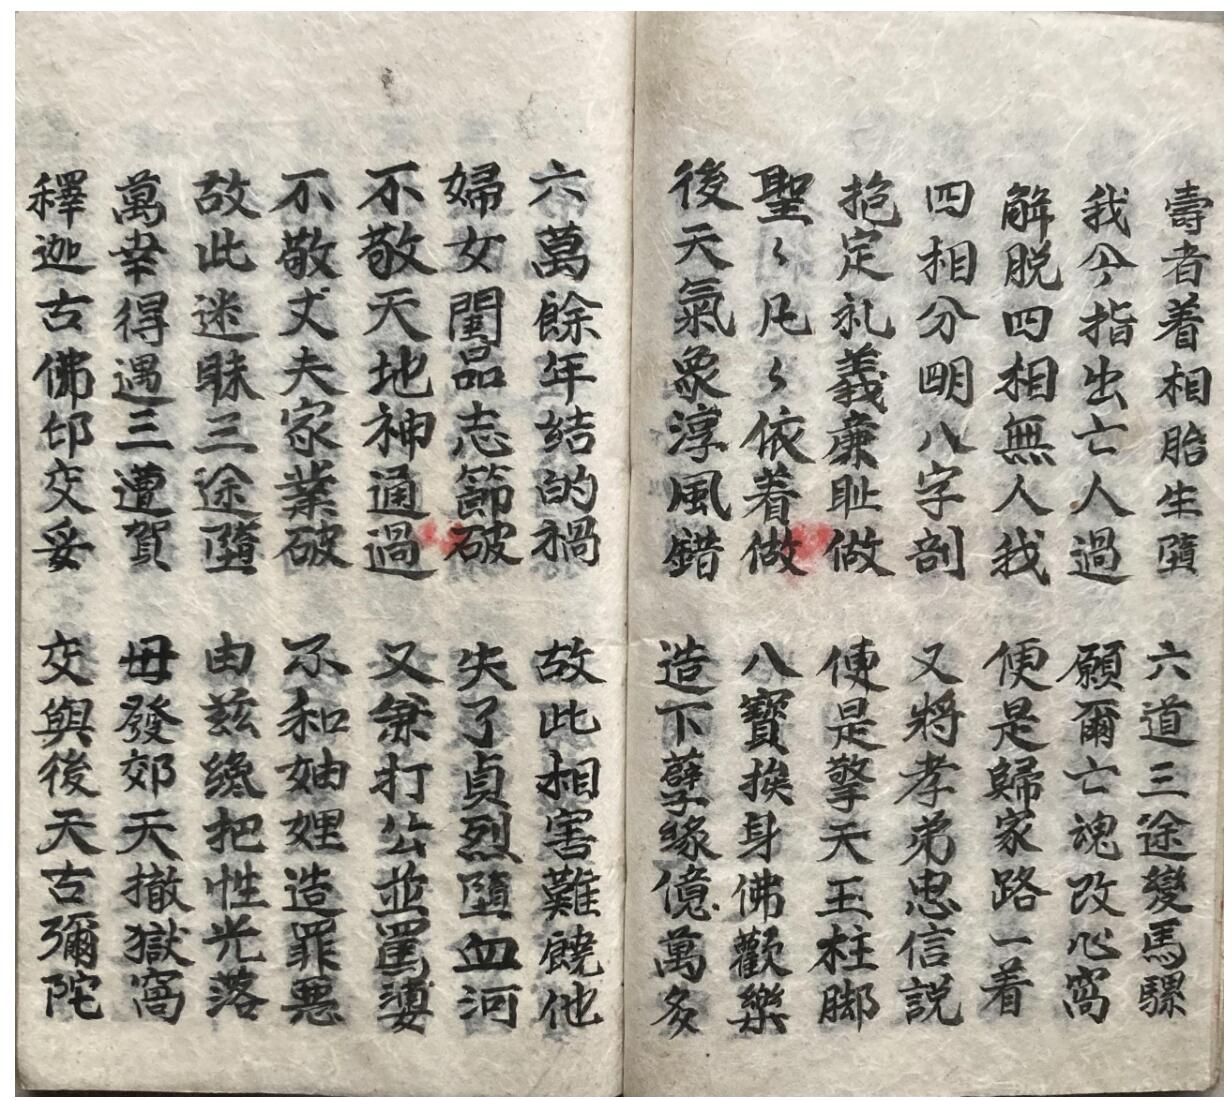 壽者着相胎生墮　六道三途變馬騾
我今指出亡人過　願爾亡魂改心窩
解脱四相無人我　便是歸家路一着
四相分明八字剖　又將孝弟忠信説
抱定礼義亷耻做　便是擎天玉柱脚
聖〻凡〻依着做　八寶挨身佛歡樂
後天氣象淳風錯　造下孽緣億萬多
六萬餘年結的禍　故此相害難饒他
婦女閨品志節破　失了貞烈墮血河
不敬天地神通過　又兼打公並罵婆
不敬丈夫家業破　不和妯娌造罪惡
故此迷昧三途墮　由兹纔把性光落
萬幸得遇三遭賀　母發郊天撤獄窩
釋迦古佛印交妥　交與後天古彌陀